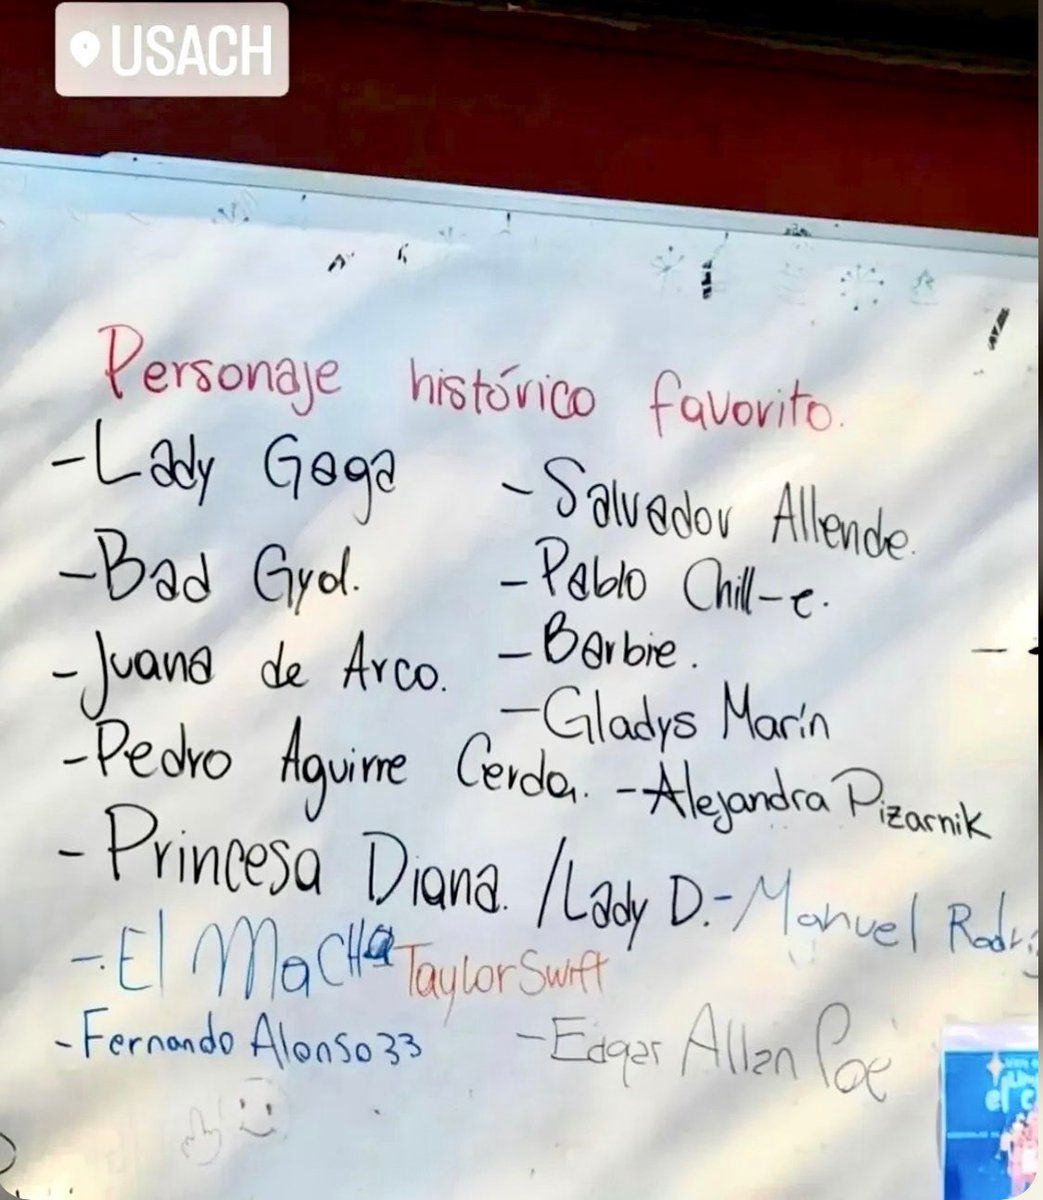 USACH
Personaje histórico favorito.
- Lady Gaga
- Bad Gyal.
- Juana de Arco.
- Pedro Aguirre Cerda.
- Princesa Diana. / Lady D.
- El MaCHa
Taylor Swift
- Fernando Alonso 33
- Salvador Allende.
- Pablo Chill-e.
- Barbie.
- Gladys Marín
- Alejandra Pizarnik
- Manuel Rodri
- Edgar Allan Poe
el c